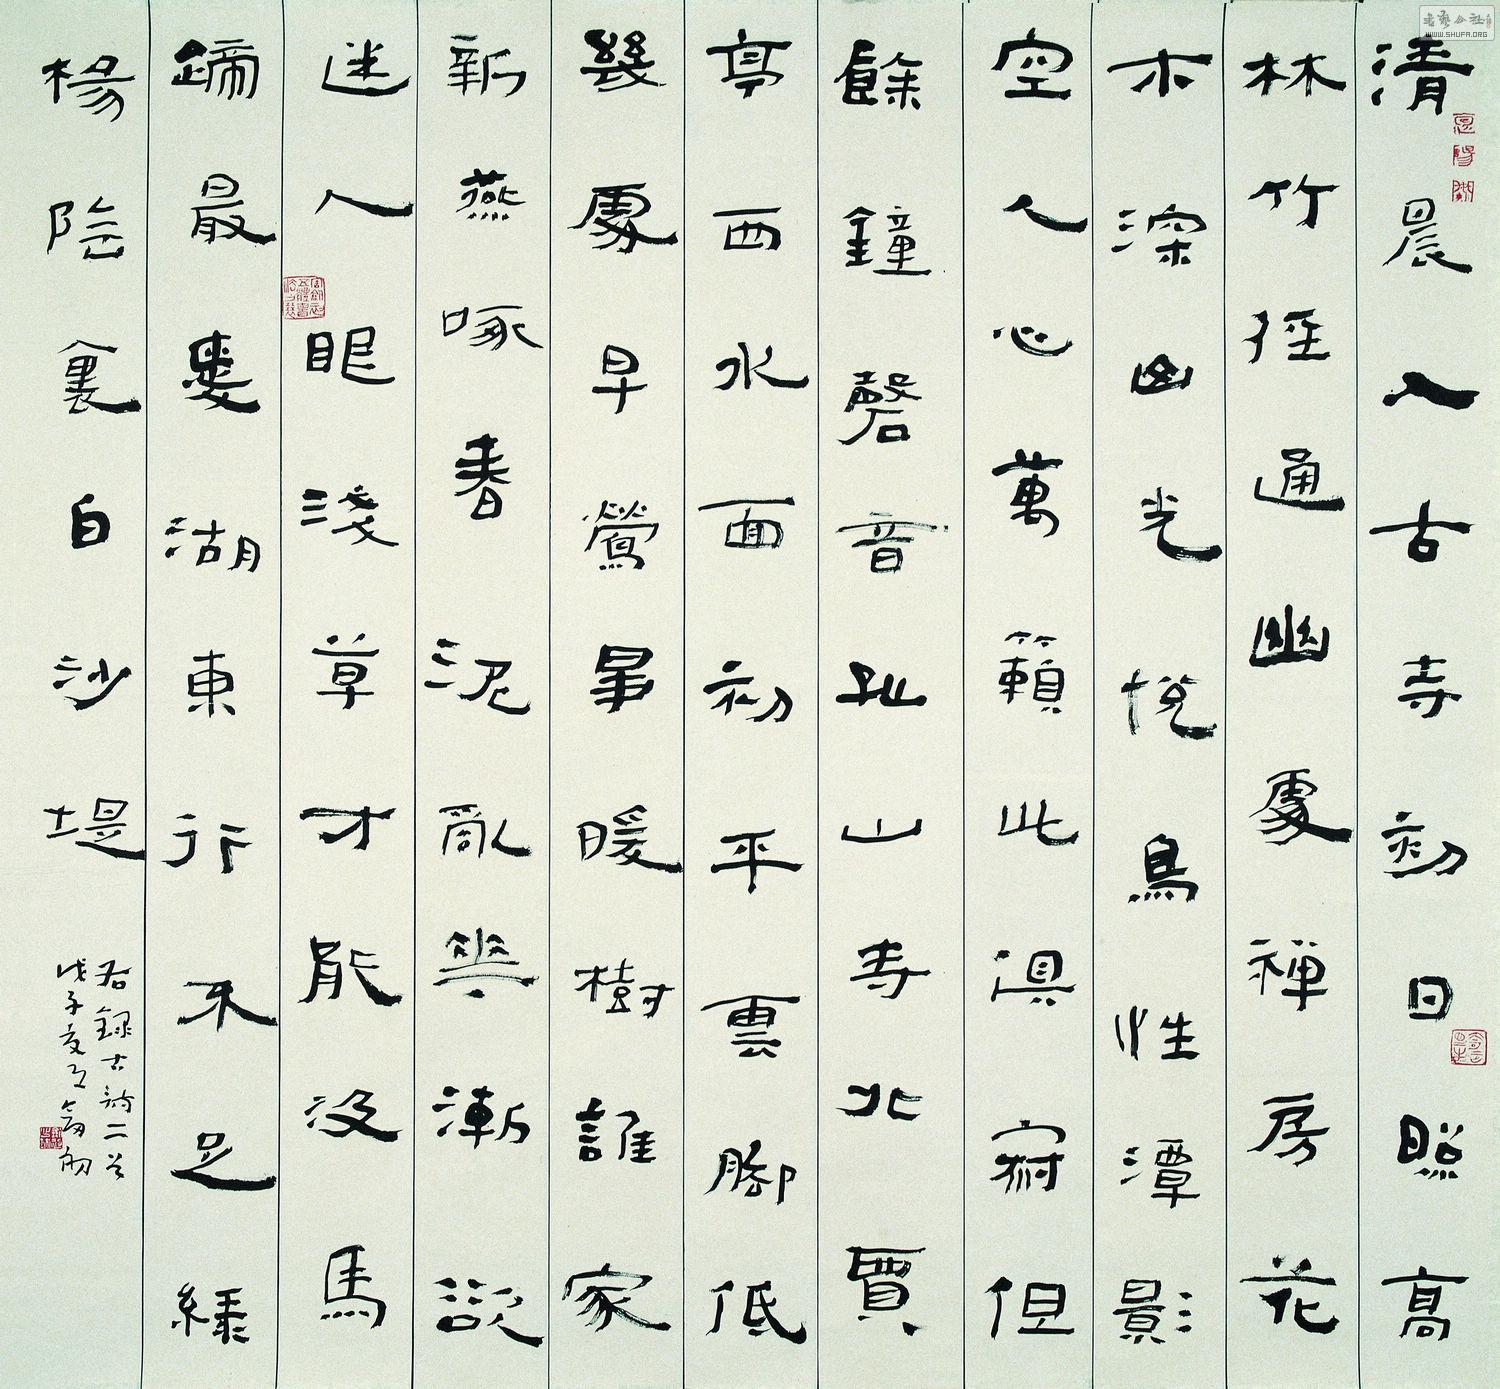 清晨入古寺初日照高
林竹徑通幽處禪房花
木深山光悅鳥性潭影
空人心萬籟此俱寂但
餘鐘磬音孤山寺北賈
亭西水面初平雲腳低
幾處早鶯爭暖樹誰家
新燕啄春泥亂花漸欲
迷人眼淺草才能沒馬
蹄最愛湖東行不足綠
楊陰裏白沙堤
右錄古詩二首
戊子夏月
书艺公社
WWW.SHUFA.ORG